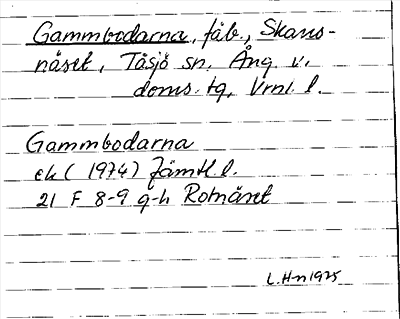 Gammbodarna, fäb., Skans-
näset, Tåsjö sn. Ång. v.
doms. tg, Vrnl. l.
Gammbodarna
ek (1974) Jämtl. l.
21 F 8-9 g-h Rotnäset
L.H-n 1975